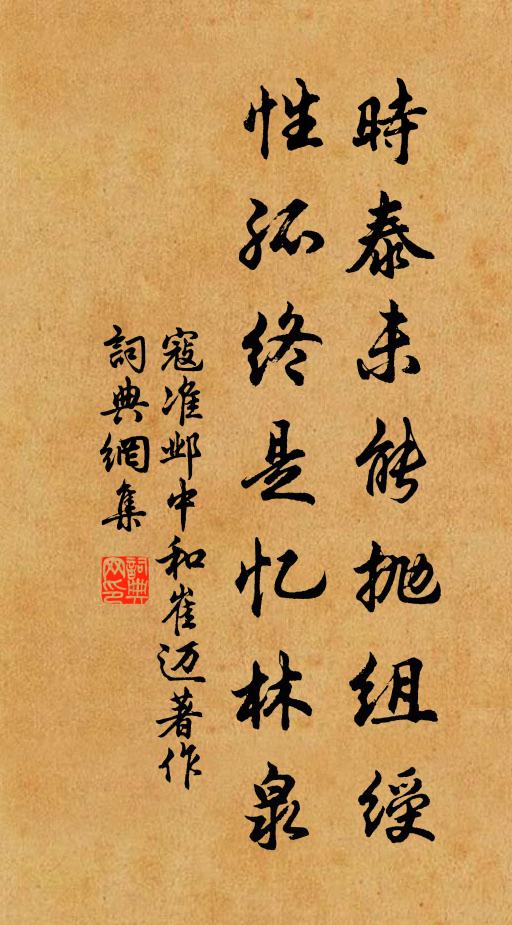 時泰未能抛組綬
性孤終是忆林泉
寇准邺中和崔迈著作
詞典網集
詞典网印